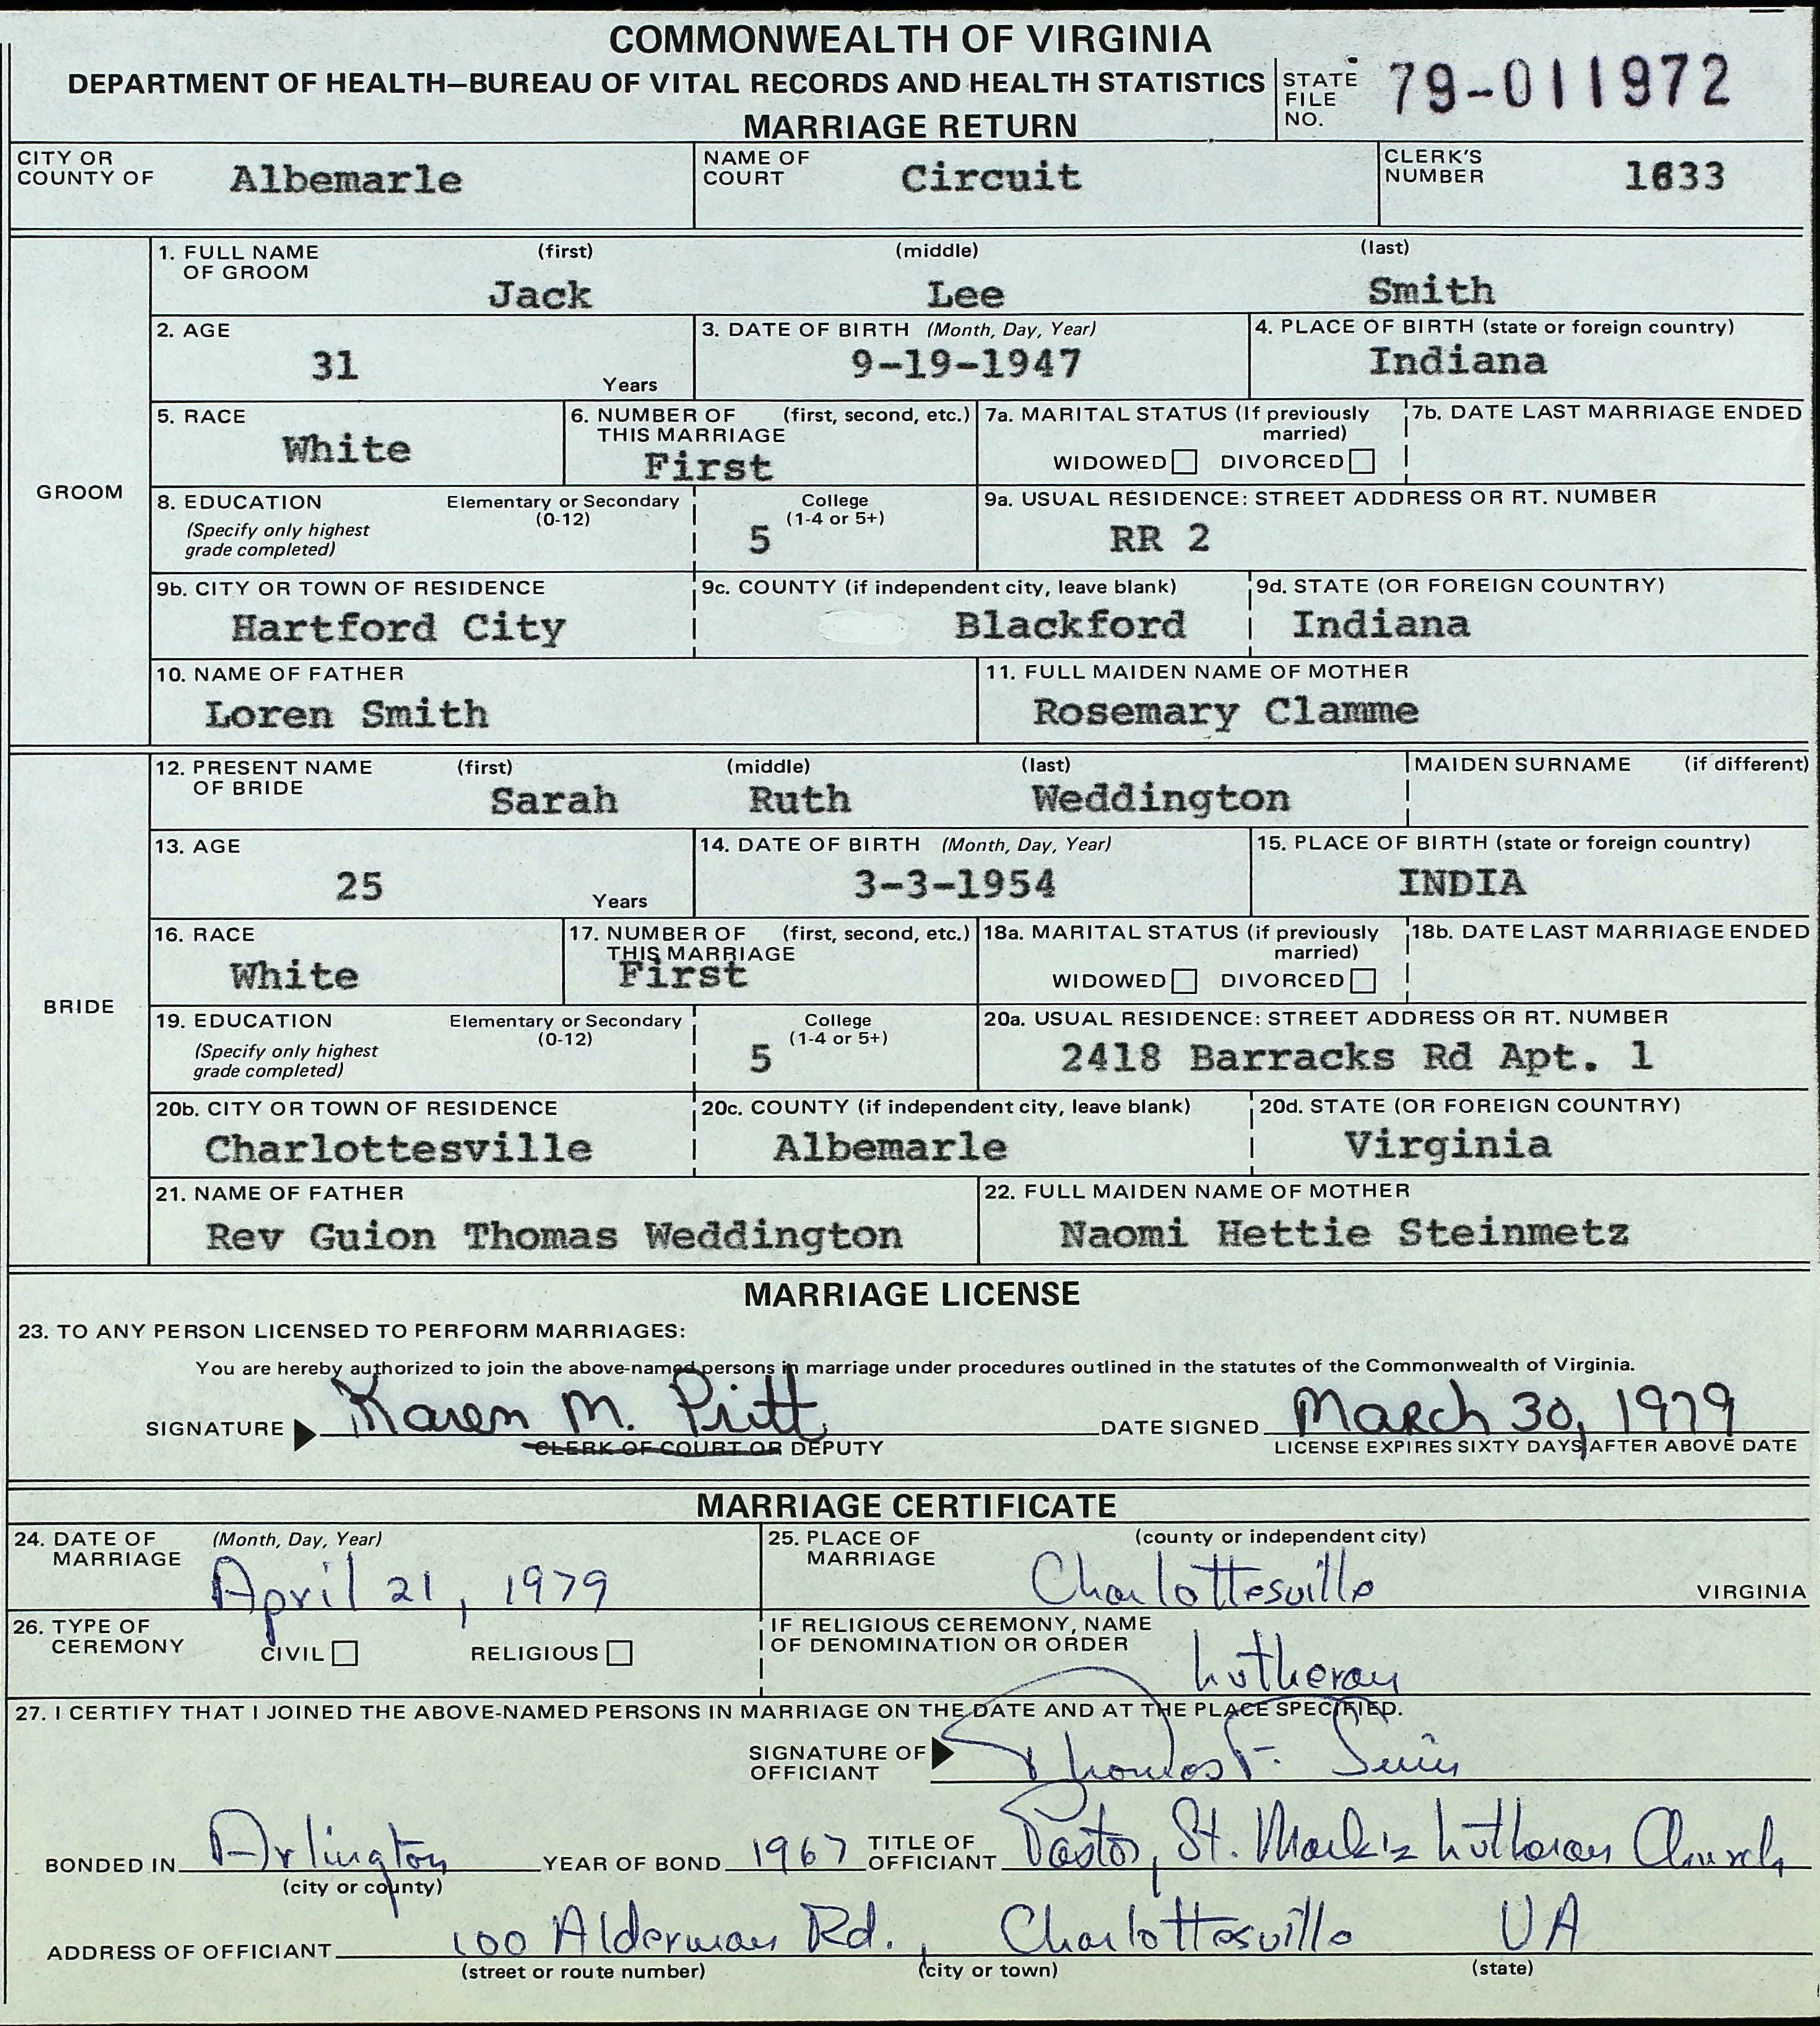 COMMONWEALTH OF VIRGINIA
DEPARTMENT OF HEALTH—BUREAU OF VITAL RECORDS AND HEALTH STATISTICS
MARRIAGE RETURN
STATE FILE NO. 79-011972
CITY OR COUNTY OF Albemarle NAME OF COURT Circuit CLERK'S NUMBER 1633
GROOM
1. FULL NAME OF GROOM (first) Jack (middle) Lee (last) Smith
2. AGE 31 Years 3. DATE OF BIRTH (Month, Day, Year) 9-19-1947 4. PLACE OF BIRTH (state or foreign country) Indiana
5. RACE White 6. NUMBER OF THIS MARRIAGE (first, second, etc.) First 7a. MARITAL STATUS (If previously married) WIDOWED DIVORCED 7b. DATE LAST MARRIAGE ENDED
8. EDUCATION (Specify only highest grade completed) Elementary or Secondary (0-12) College (1-4 or 5+) 5 9a. USUAL RESIDENCE: STREET ADDRESS OR RT. NUMBER RR 2
9b. CITY OR TOWN OF RESIDENCE Hartford City 9c. COUNTY (if independent city, leave blank) Blackford 9d. STATE (OR FOREIGN COUNTRY) Indiana
10. NAME OF FATHER Loren Smith 11. FULL MAIDEN NAME OF MOTHER Rosemary Clamme
BRIDE
12. PRESENT NAME OF BRIDE (first) Sarah (middle) Ruth (last) Weddington MAIDEN SURNAME (if different)
13. AGE 25 Years 14. DATE OF BIRTH (Month, Day, Year) 3-3-1954 15. PLACE OF BIRTH (state or foreign country) INDIA
16. RACE White 17. NUMBER OF THIS MARRIAGE (first, second, etc.) First 18a. MARITAL STATUS (if previously married) WIDOWED DIVORCED 18b. DATE LAST MARRIAGE ENDED
19. EDUCATION (Specify only highest grade completed) Elementary or Secondary (0-12) College (1-4 or 5+) 5 20a. USUAL RESIDENCE: STREET ADDRESS OR RT. NUMBER 2418 Barracks Rd Apt. 1
20b. CITY OR TOWN OF RESIDENCE Charlottesville 20c. COUNTY (if independent city, leave blank) Albemarle 20d. STATE (OR FOREIGN COUNTRY) Virginia
21. NAME OF FATHER Rev Guion Thomas Weddington 22. FULL MAIDEN NAME OF MOTHER Naomi Hettie Steinmetz
MARRIAGE LICENSE
23. TO ANY PERSON LICENSED TO PERFORM MARRIAGES:
You are hereby authorized to join the above-named persons in marriage under procedures outlined in the statutes of the Commonwealth of Virginia.
SIGNATURE Karen M. Pritt DATE SIGNED March 30, 1979
CLERK OF COURT OR DEPUTY LICENSE EXPIRES SIXTY DAYS AFTER ABOVE DATE
MARRIAGE CERTIFICATE
24. DATE OF MARRIAGE (Month, Day, Year) April 21, 1979 25. PLACE OF MARRIAGE (county or independent city) Charlottesville VIRGINIA
26. TYPE OF CEREMONY CIVIL RELIGIOUS IF RELIGIOUS CEREMONY, NAME OF DENOMINATION OR ORDER Lutheran
27. I CERTIFY THAT I JOINED THE ABOVE-NAMED PERSONS IN MARRIAGE ON THE DATE AND AT THE PLACE SPECIFIED.
SIGNATURE OF OFFICIANT Thomas F.
BONDED IN Arlington YEAR OF BOND 1967 TITLE OF OFFICIANT Pastor, St. Mark's Lutheran Church
(city or county)
ADDRESS OF OFFICIANT 100 Alderman Rd., Charlottesville VA
(street or route number) (city or town) (state)